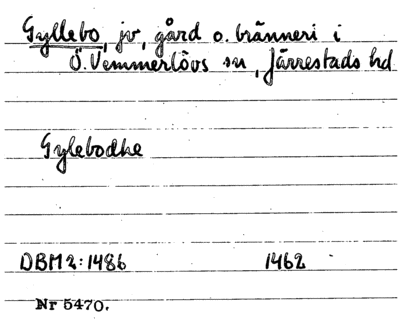 Gyllebo, jv, gård o. bränneri i
Ö. Vemmerlövs sn, Järrestads hd
Gylebodhe
DBM2:1486 1462
Nr 5470.